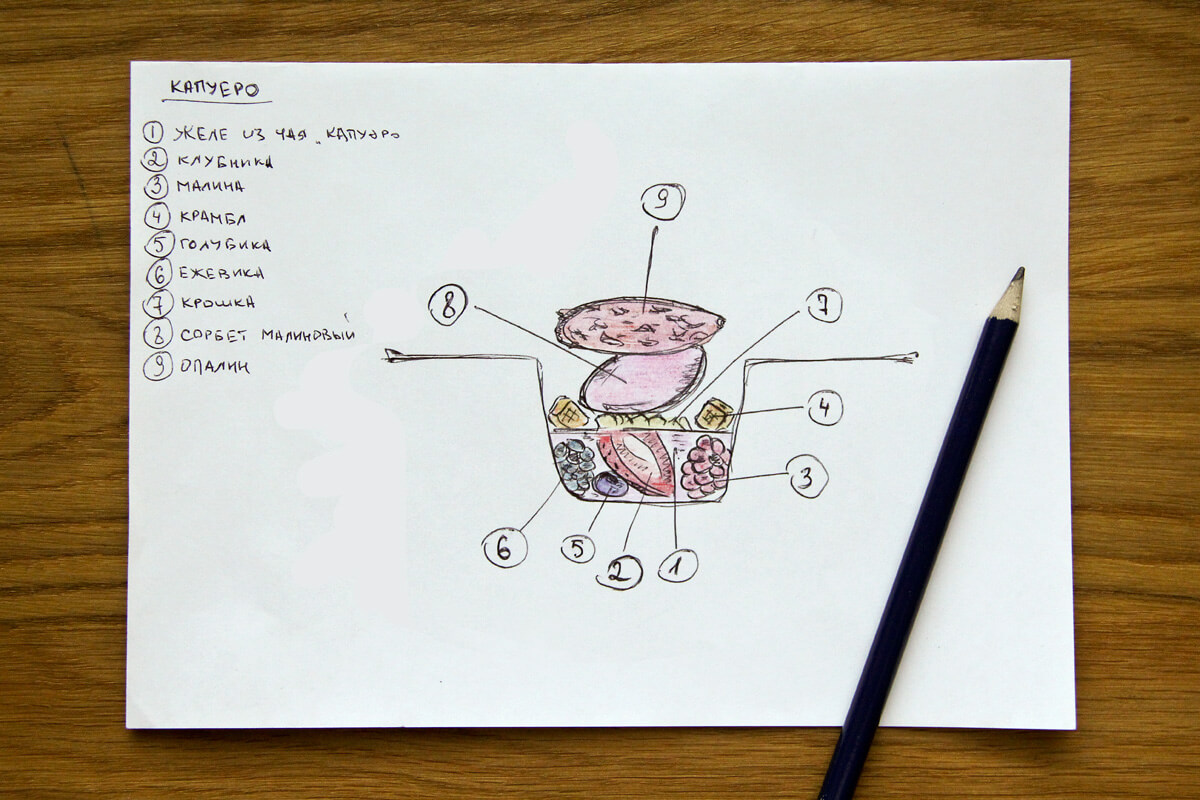 КАПУЕРО
1 ЖЕЛЕ ИЗ ЧАЯ „КАПУЭРО
2 КЛУБНИКА
3 МАЛИНА
4 КРАМБЛ
5 ГОЛУБИКА
6 ЕЖЕВИКА
7 КРОШКА
8 СОРБЕТ МАЛИНОВЫЙ
9 ОПАЛИН
9
8
7
4
3
6
5
2
1